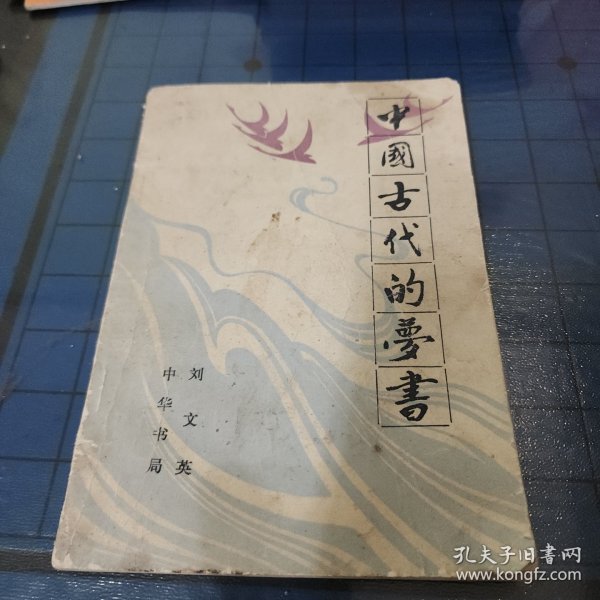 中國古代的夢書
刘文英
中华书局
孔夫子旧书网
www.kongfz.com